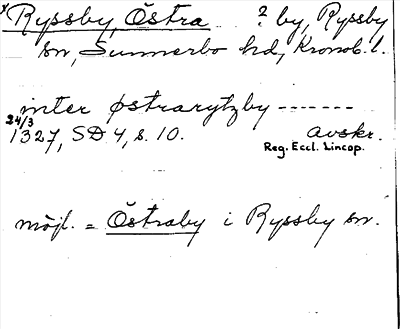 Ryssby, Östra ? by, Ryssby
sn, Sunnerbo hd, Kronob. l.
inter østrarytzby -------
24/3
1327, SD 4, s. 10. avskr.
Reg. Eccl. Lincop.
möjl. = Östraby i Ryssby sn.